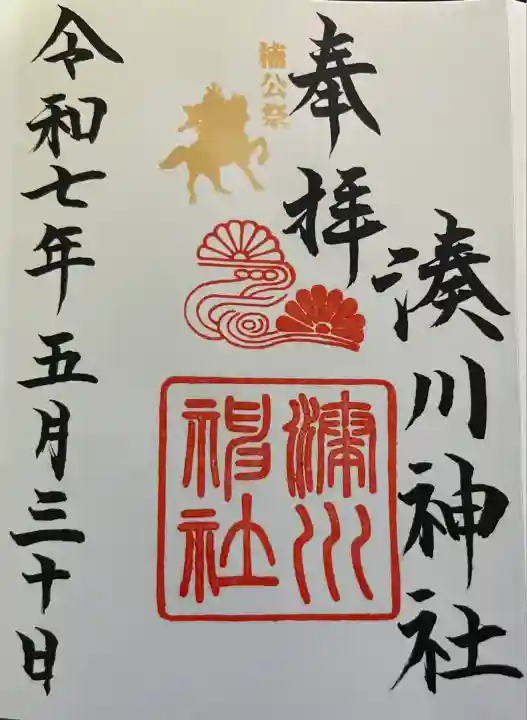 湊川神社
奉拝
楠公祭
湊川
神社
令和七年五月三十日